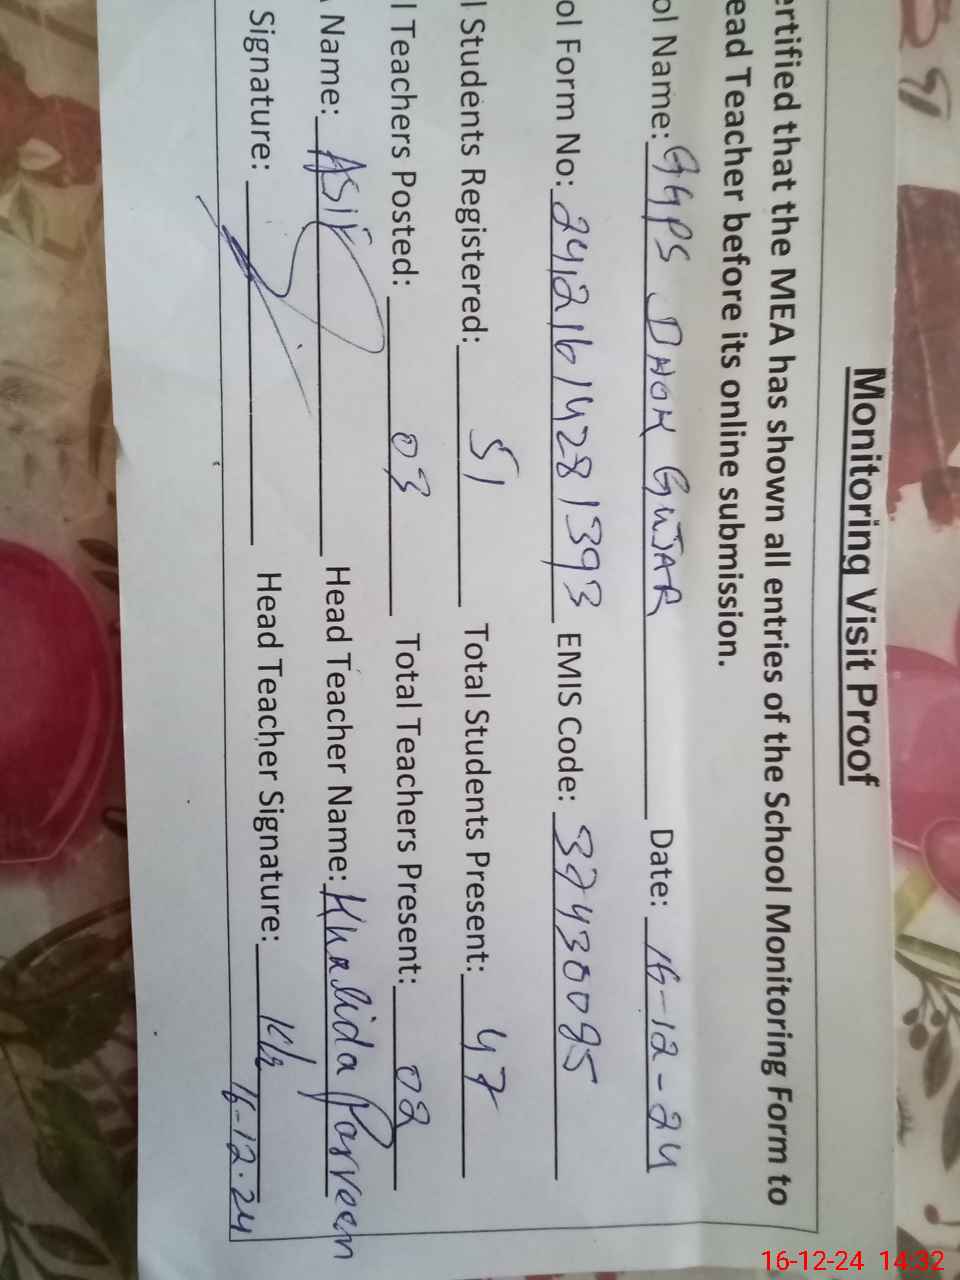 Monitoring Visit Proof
ertified that the MEA has shown all entries of the School Monitoring Form to
ead Teacher before its online submission.
ol Name: GGPS DHOK GUJAR Date: 16-12-24
ol Form No: 24121614281393 EMIS Code: 37430095
l Students Registered: 51 Total Students Present: 47
l Teachers Posted: 03 Total Teachers Present: 02
Name: ASIF Head Teacher Name: Khalida Parveen
Signature: Head Teacher Signature:
16-12-24
16-12-24 14:32